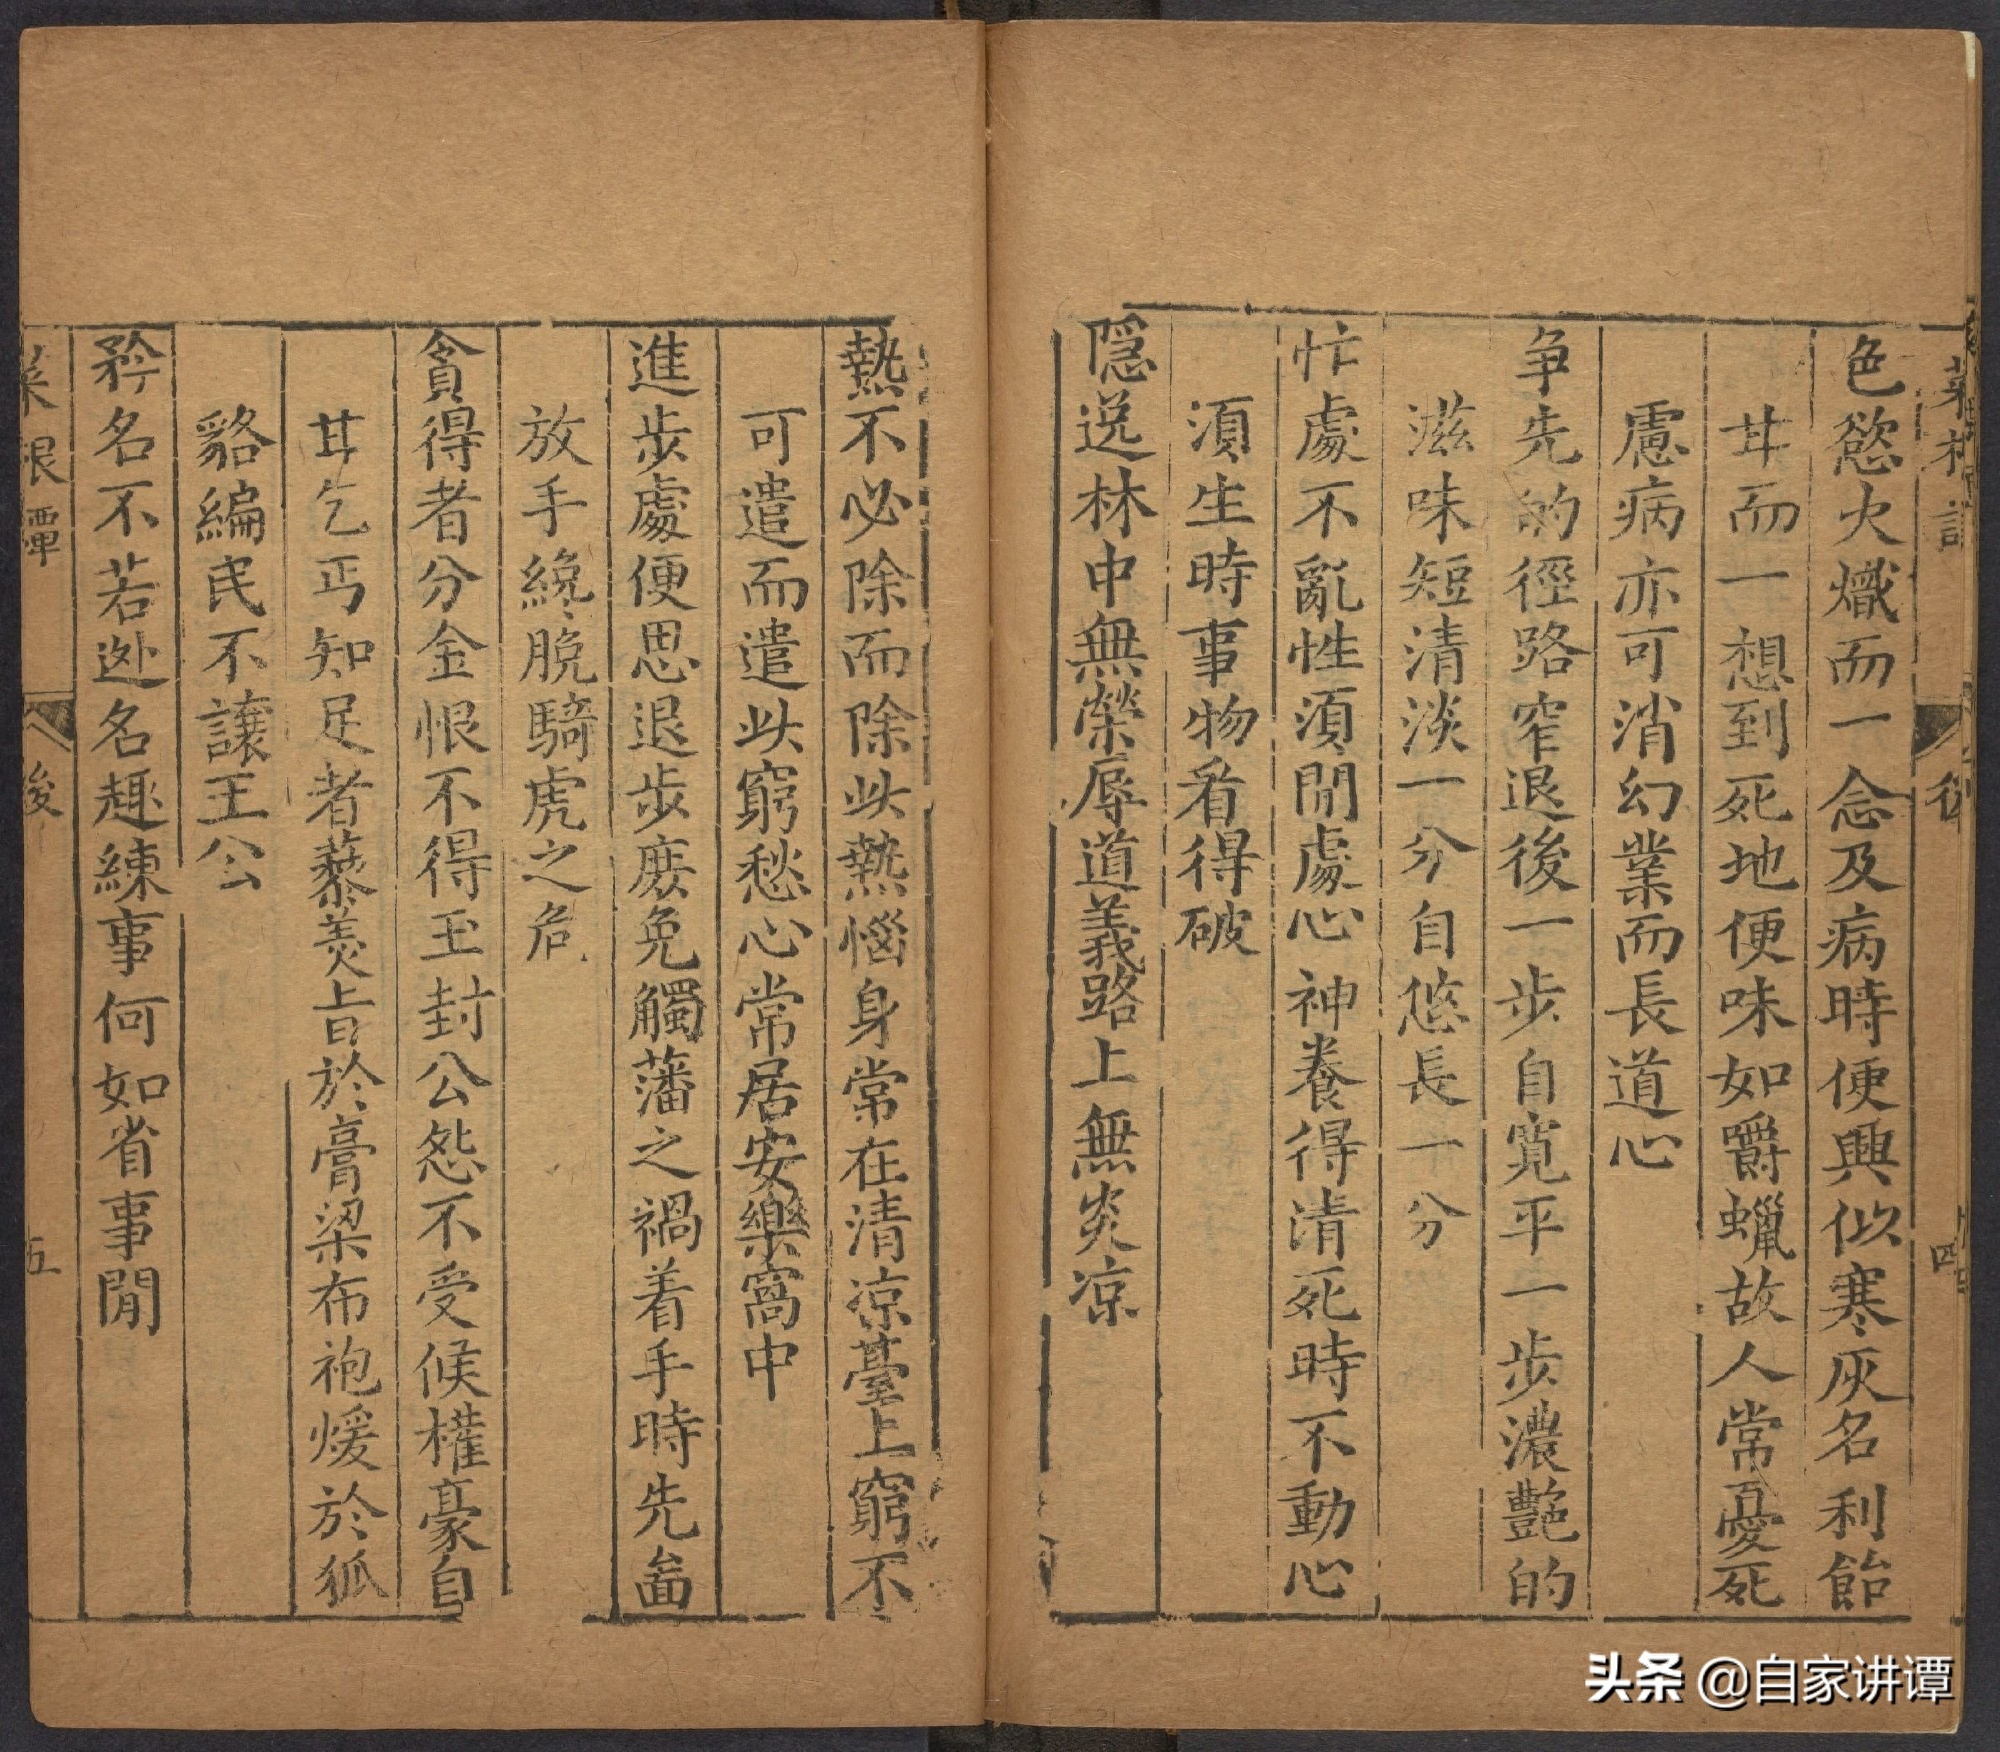 菜根譚
後
四
色慾火熾而一念及病時便興似寒灰名利飴
甘而一想到死地便味如嚼蠟故人常憂死
慮病亦可消幻業而長道心
争先的徑路窄退後一步自寬平一步濃艷的
滋味短清淡一分自悠長一分
忙處不亂性須閒處心神養得清死時不動心
須生時事物看得破
隱逸林中無榮辱道義路上無炎凉
熱不必除而除此熱惱身常在清凉臺上窮不
可遣而遣此窮愁心常居安樂窩中
進步處便思退步庶免觸藩之禍着手時先啚
放手纔脫騎虎之危
貪得者分金恨不得玉封公怨不受侯權豪自
甘乞丐知足者藜羹旨於膏梁布袍煖於狐
貉編民不讓王公
矜名不若逃名趣練事何如省事閒
菜根譚
後
五
头条 @自家讲谭